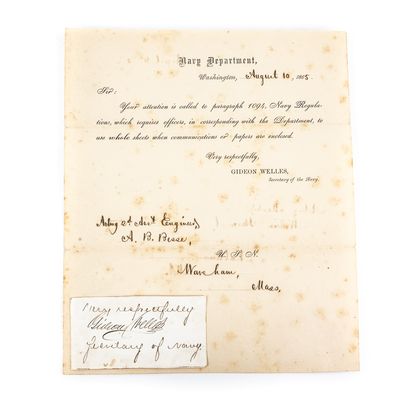 Navy Department,
Washington, August 10, 1865.
Sir:
Your attention is called to paragraph 1094, Navy Regula-
tions, which requires officers, in corresponding with the Department, to
use whole sheets when communications or papers are enclosed.
Very respectfully,
GIDEON WELLES,
Secretary of the Navy.
Actg 2d Asst Engineer
A. B. Besse,
U. S. N.
Wareham,
Mass.
Very respectfully
Gideon Welles
Secretary of Navy